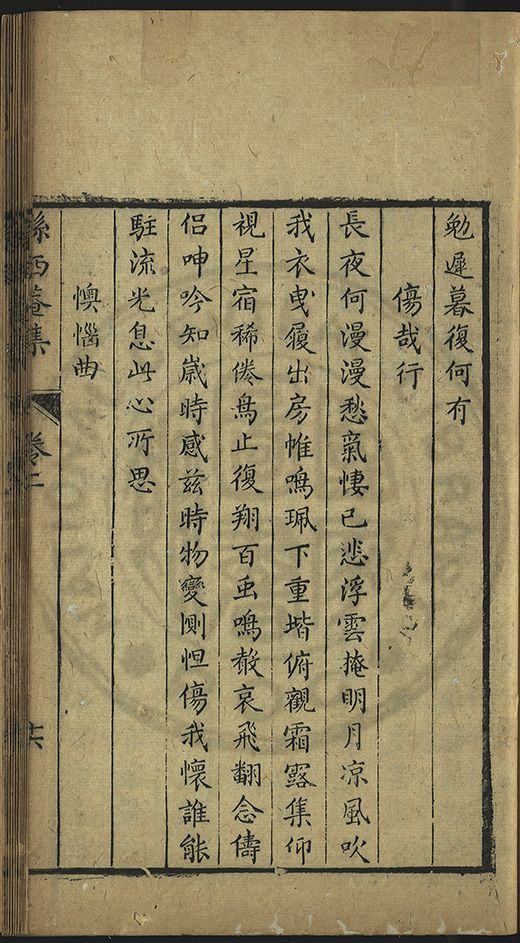 勉遲暮復何有
傷哉行
長夜何漫漫愁氣悽已悲浮雲掩明月凉風吹
我衣曳履出房帷鳴珮下重堦俯觀霜露集仰
視星宿稀倦鳥止復翔百虫鳴㪇哀飛翻念儔
侣呻吟知歳時感茲時物變惻怛傷我懷誰能
駐流光息此心所思
懊惱曲
孫西菴集
卷二
十六